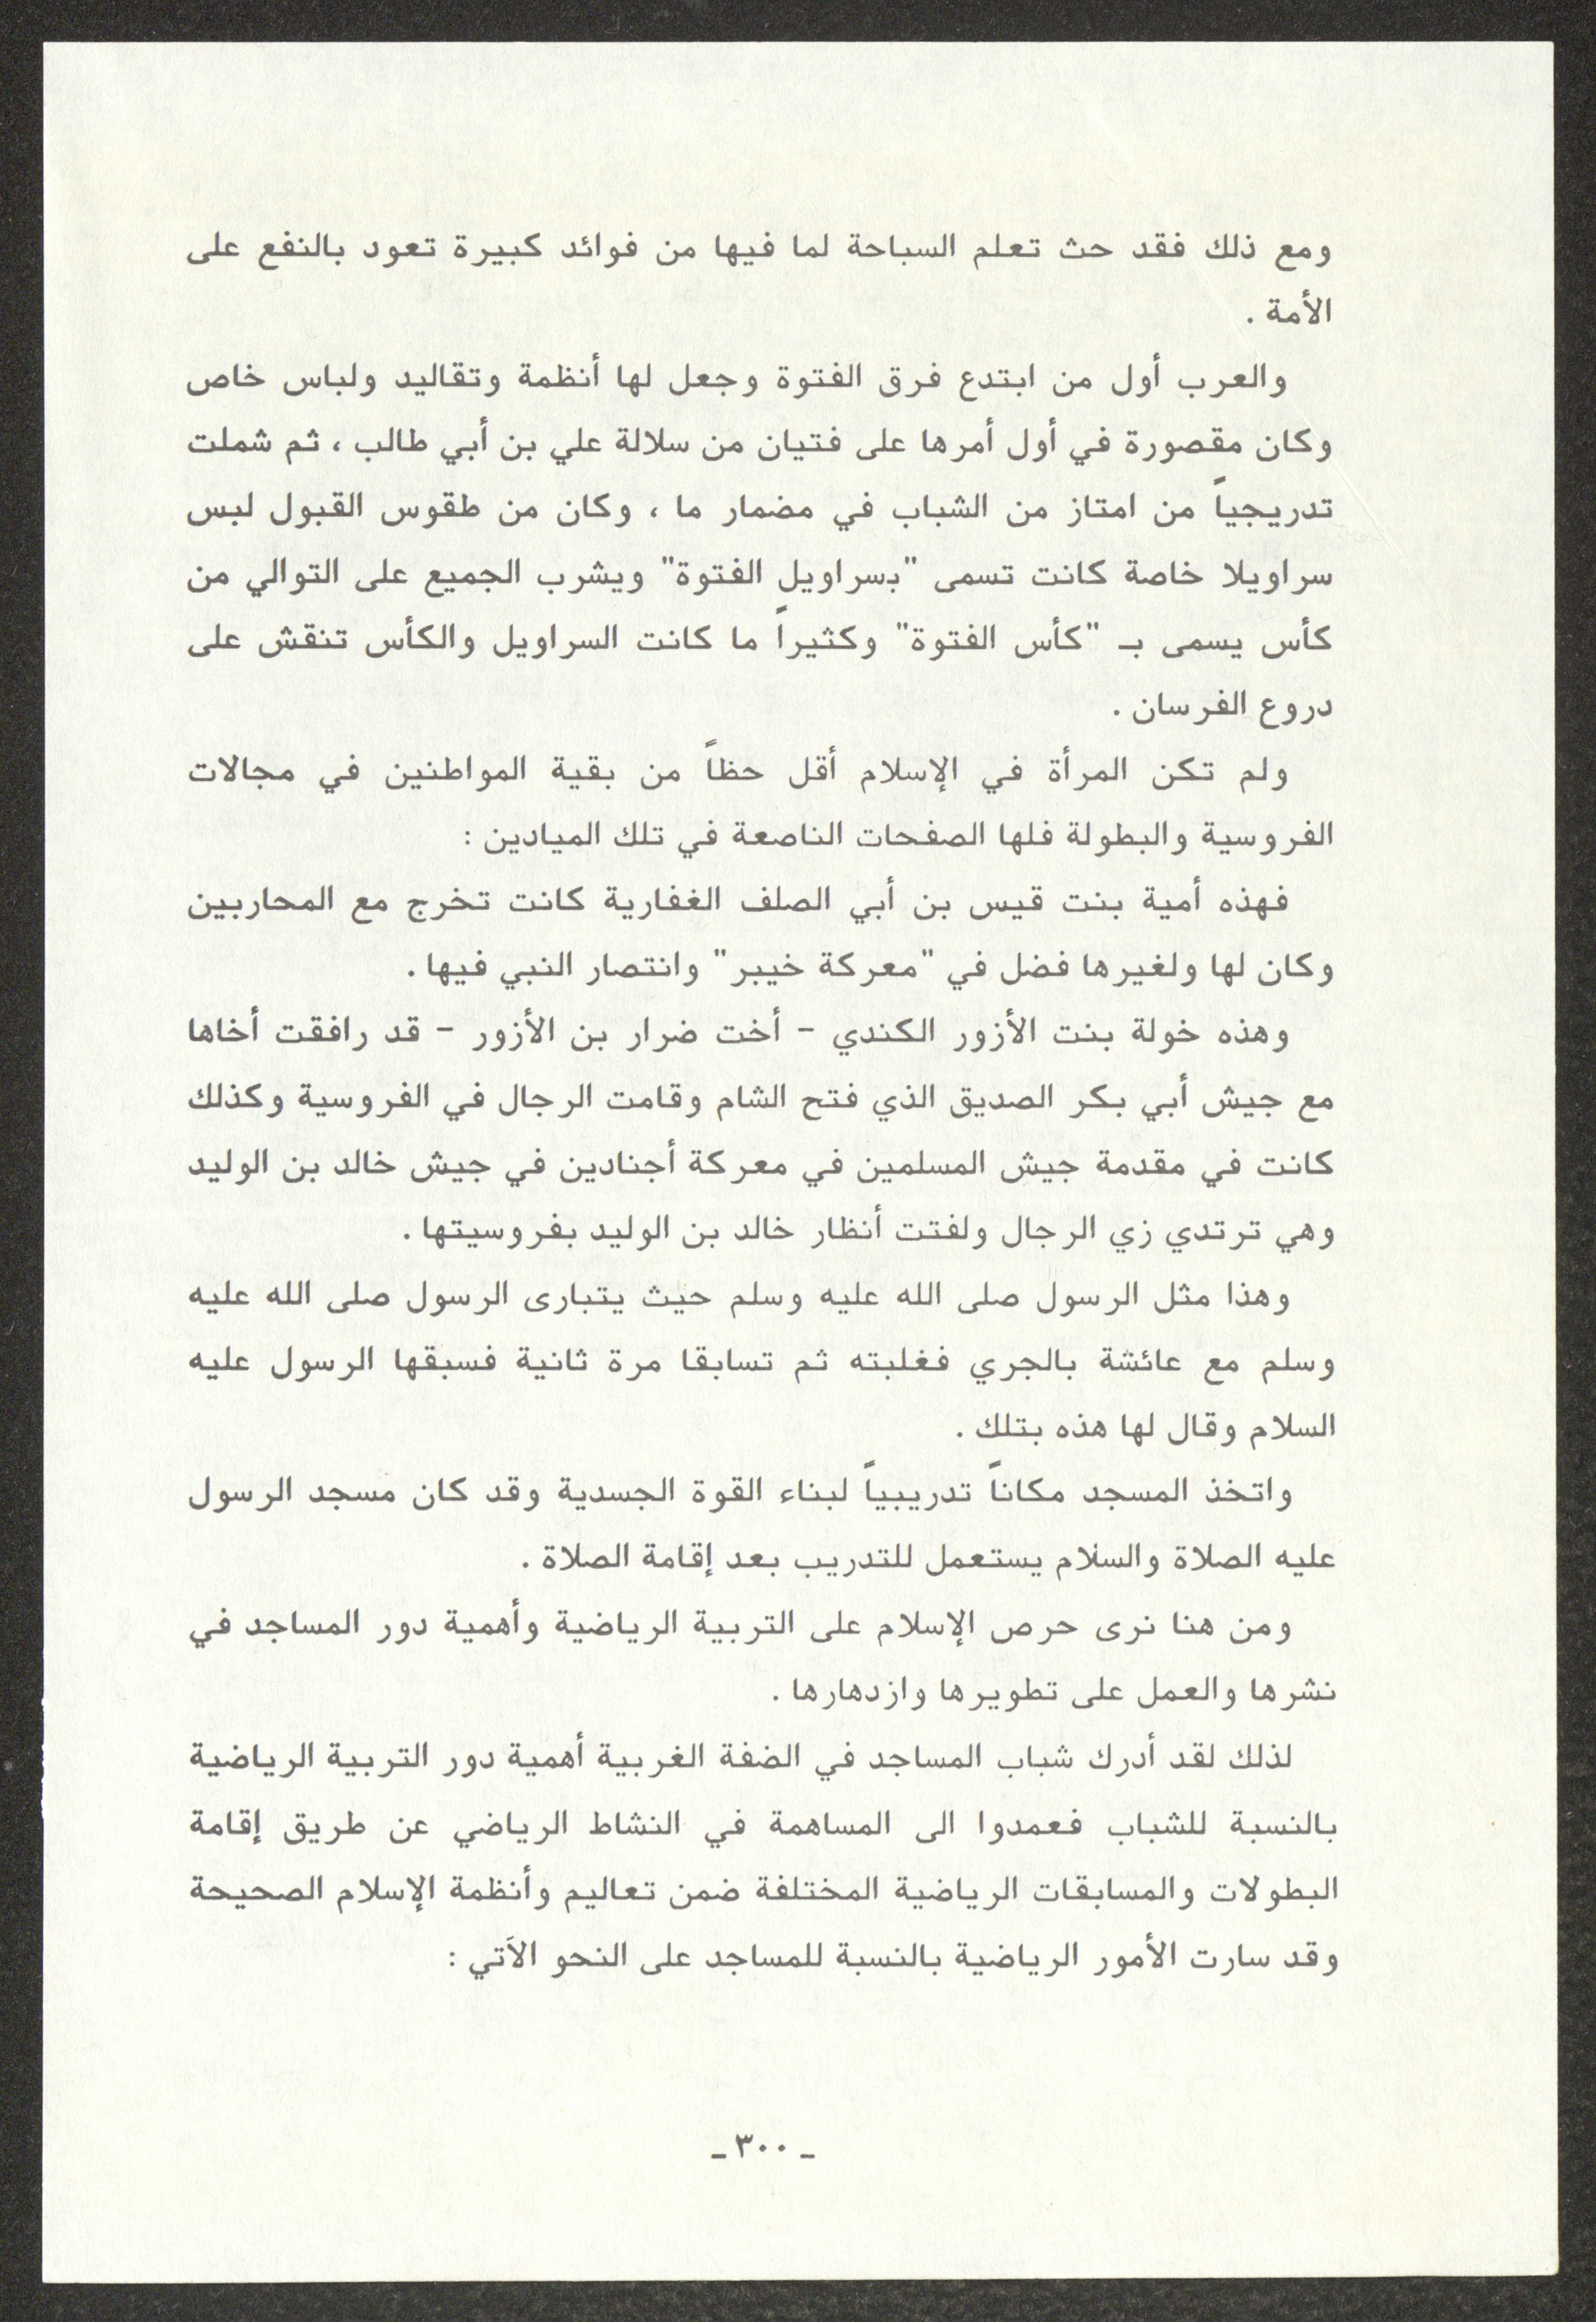 ومع ذلك فقد حث تعلم السباحة لما فيها من فوائد كبيرة تعود بالنفع على
الأمة .
والعرب أول من ابتدع فرق الفتوة وجعل لها أنظمة وتقاليد ولباس خاص
وكان مقصورة في أول أمرها على فتيان من سلالة علي بن أبي طالب ، ثم شملت
تدريجياً من امتاز من الشباب في مضمار ما ، وكان من طقوس القبول لبس
سراويلا خاصة كانت تسمى "بسراويل الفتوة" ويشرب الجميع على التوالي من
كأس يسمى بـ "كأس الفتوة" وكثيراً ما كانت السراويل والكأس تنقش على
دروع الفرسان .
ولم تكن المرأة في الإسلام أقل حظاً من بقية المواطنين في مجالات
الفروسية والبطولة فلها الصفحات الناصعة في تلك الميادين :
فهذه أمية بنت قيس بن أبي الصلف الغفارية كانت تخرج مع المحاربين
وكان لها ولغيرها فضل في "معركة خيبر" وانتصار النبي فيها .
وهذه خولة بنت الأزور الكندي - أخت ضرار بن الأزور - قد رافقت أخاها
مع جيش أبي بكر الصديق الذي فتح الشام وقامت الرجال في الفروسية وكذلك
كانت في مقدمة جيش المسلمين في معركة أجنادين في جيش خالد بن الوليد
وهي ترتدي زي الرجال ولفتت أنظار خالد بن الوليد بفروسيتها .
وهذا مثل الرسول صلى الله عليه وسلم حيث يتبارى الرسول صلى الله عليه
وسلم مع عائشة بالجري فغلبته ثم تسابقا مرة ثانية فسبقها الرسول عليه
السلام وقال لها هذه بتلك .
واتخذ المسجد مكاناً تدريبياً لبناء القوة الجسدية وقد كان مسجد الرسول
عليه الصلاة والسلام يستعمل للتدريب بعد إقامة الصلاة .
ومن هنا نرى حرص الإسلام على التربية الرياضية وأهمية دور المساجد في
نشرها والعمل على تطويرها وازدهارها .
لذلك لقد أدرك شباب المساجد في الضفة الغربية أهمية دور التربية الرياضية
بالنسبة للشباب فعمدوا الى المساهمة في النشاط الرياضي عن طريق إقامة
البطولات والمسابقات الرياضية المختلفة ضمن تعاليم وأنظمة الإسلام الصحيحة
وقد سارت الأمور الرياضية بالنسبة للمساجد على النحو الآتي :
ـ ٣٠٠ ـ